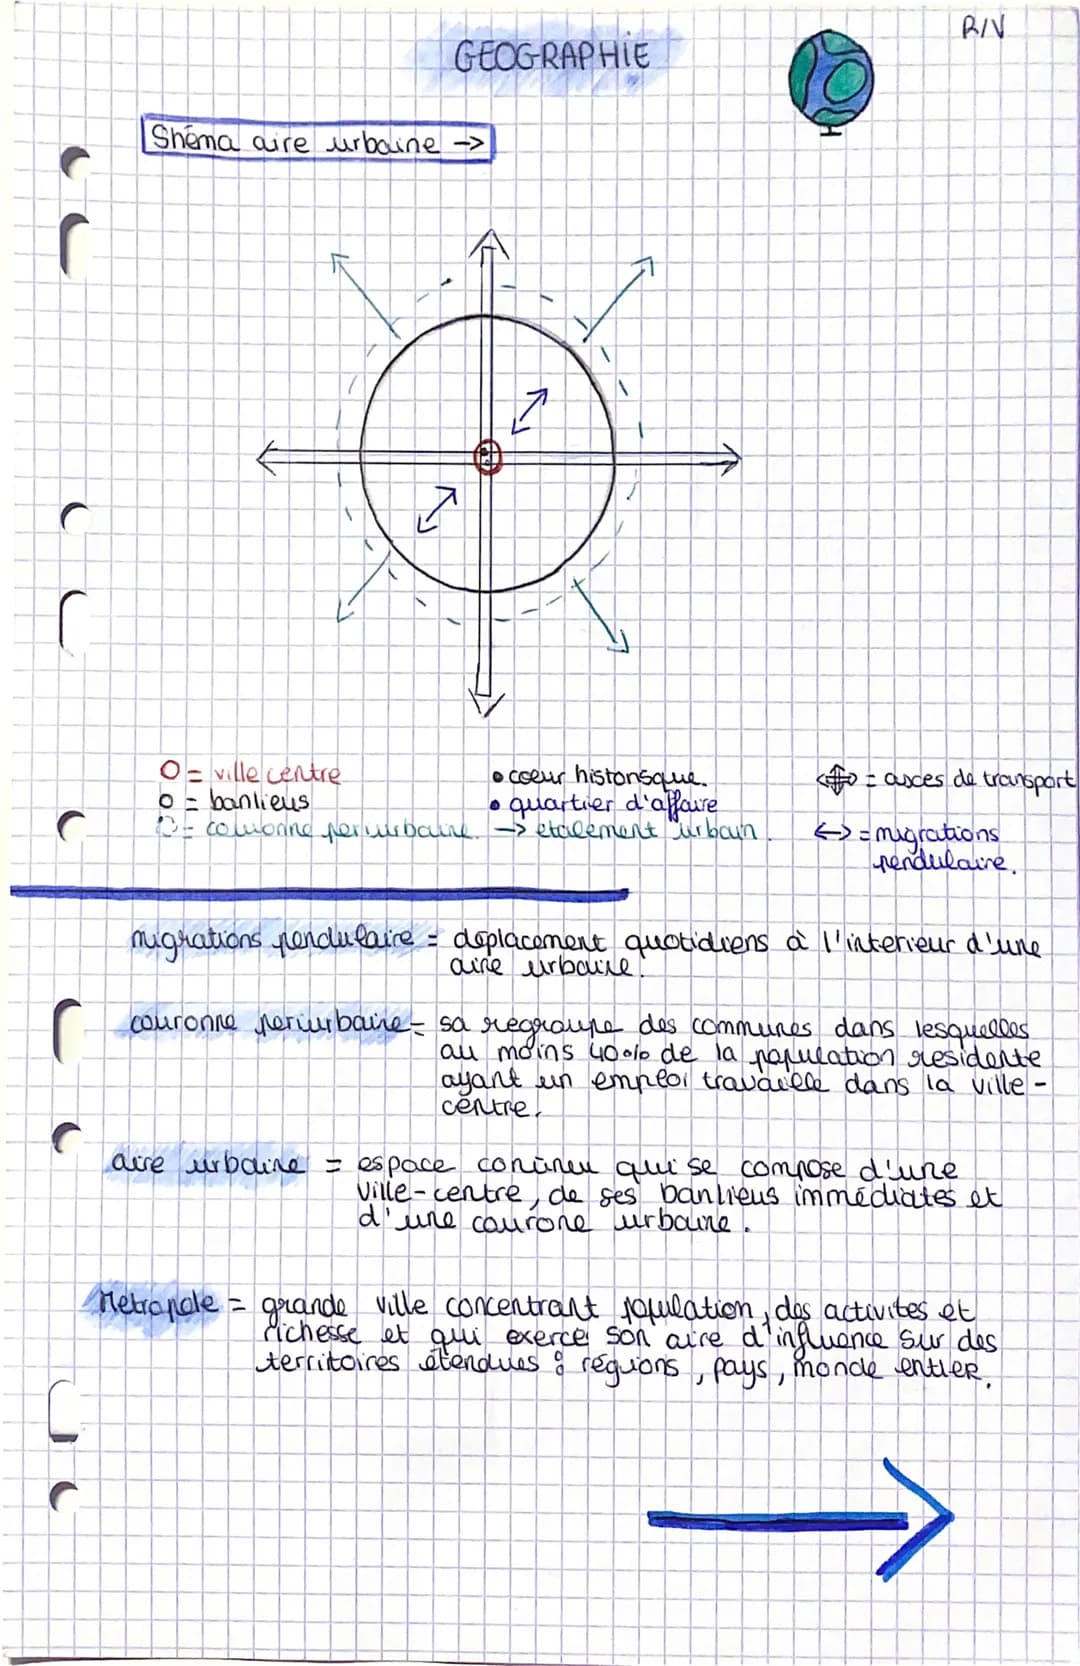 R/V
GEOGRAPHiE
Shéma aire urbaine ->
O = ville centre
O = banlieus
= couronne periurbaine.
• coeur historique.
• quartier d'affaire
-> etalement urbain.
= axces de transport
<-> = migrations
pendulaire.
migrations pendulaire = deplacement quotidiens à l'interieur d'une
aire urbaine.
couronne periurbaine = sa regroupe des communes dans lesquelles
au moins 40% de la population residente
ayant un emploi travaille dans la ville-
centre.
aire urbaine = espace continu qui se compose d'une
ville-centre, de ses banlieus immédiates et
d'une courone urbaine.
Metropole = grande ville concentrant population, des activites et
richesse et qui exerce son aire d'influence sur des
territoires étendues : régions, pays, monde entier.